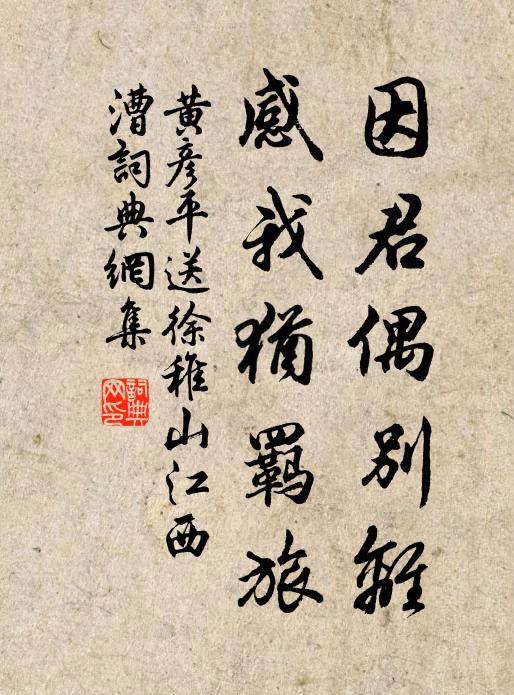 因君偶別離
感我猶羈旅
黃彥平送徐稚山江西
漕詞典網集
詞典
网印